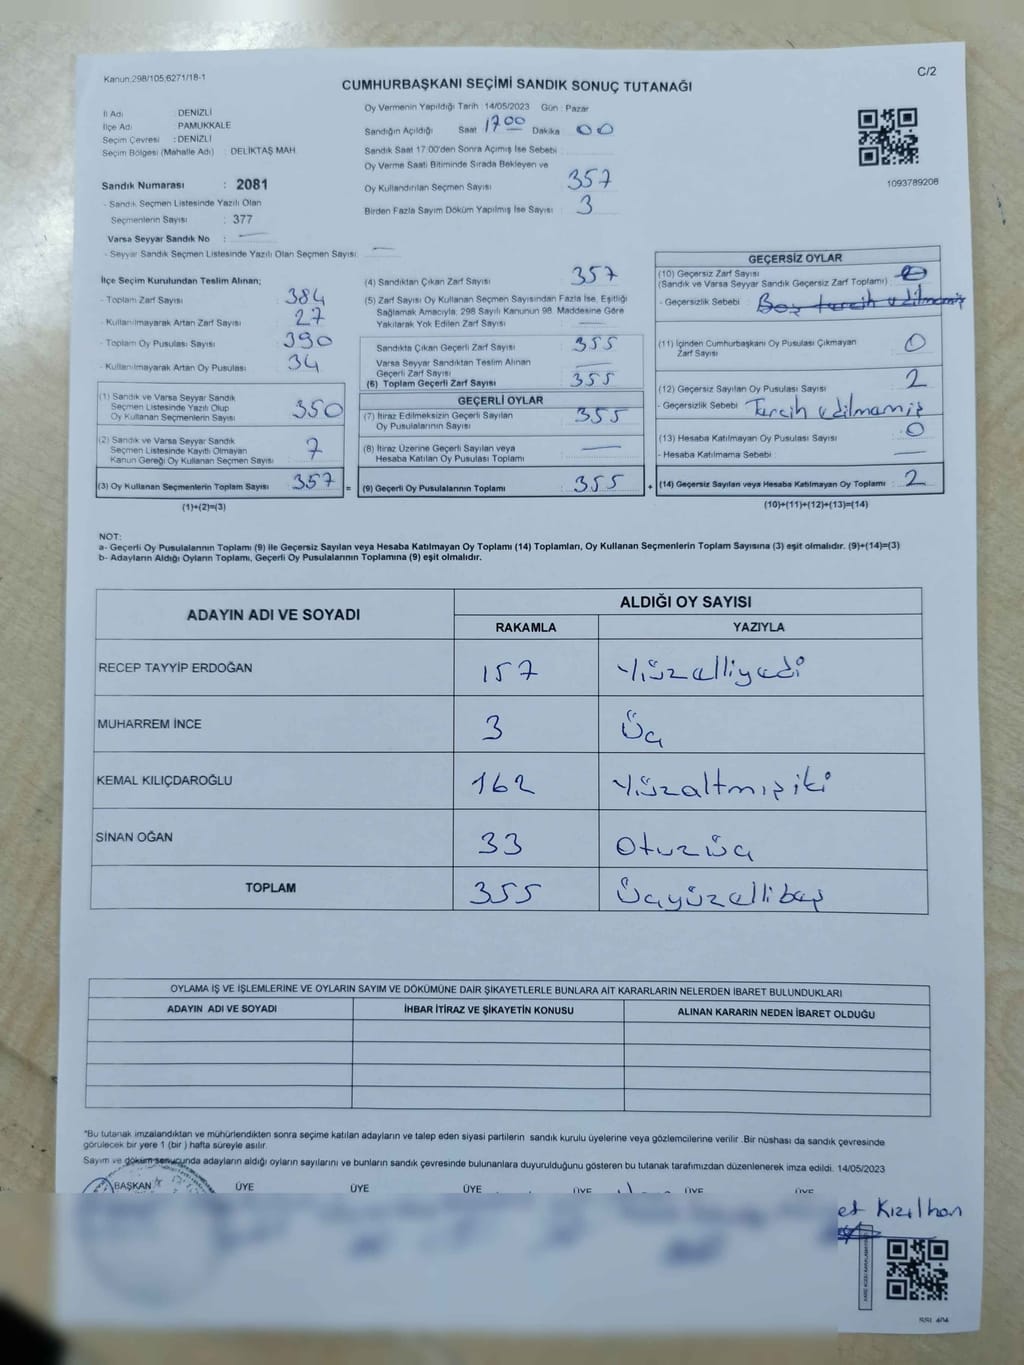 Kanun:298/105;6271/18-1
C/2
CUMHURBAŞKANI SEÇİMİ SANDIK SONUÇ TUTANAĞI
İl Adı : DENİZLİ
İlçe Adı : PAMUKKALE
Seçim Çevresi : DENİZLİ
Seçim Bölgesi (Mahalle Adı) : DELİKTAŞ MAH.
Sandık Numarası : 2081
- Sandık Seçmen Listesinde Yazılı Olan
Seçmenlerin Sayısı : 377
Varsa Seyyar Sandık No : —
- Seyyar Sandık Seçmen Listesinde Yazılı Olan Seçmen Sayısı: —
Oy Vermenin Yapıldığı Tarih :14/05/2023 Gün : Pazar
Sandığın Açıldığı Saat 17 00 Dakika 00
Sandık Saat 17:00'den Sonra Açımış İse Sebebi :
Oy Verme Saati Bitiminde Sırada Bekleyen ve
Oy Kullandırılan Seçmen Sayısı : 357
Birden Fazla Sayım Döküm Yapılmış İse Sayısı : 3
1093789208
İlçe Seçim Kurulundan Teslim Alınan;
- Toplam Zarf Sayısı : 384
- Kullanılmayarak Artan Zarf Sayısı : 27
- Toplam Oy Pusulası Sayısı : 390
- Kullanılmayarak Artan Oy Pusulası : 34
(1) Sandık ve Varsa Seyyar Sandık
Seçmen Listesinde Yazılı Olup
Oy Kullanan Seçmenlerin Sayısı : 350
(2) Sandık ve Varsa Seyyar Sandık
Seçmen Listesinde Kayıtlı Olmayan
Kanun Gereği Oy Kullanan Seçmen Sayısı : 7
(3) Oy Kullanan Seçmenlerin Toplam Sayısı : 357 =
(1)+(2)=(3)
(4) Sandıktan Çıkan Zarf Sayısı : 357
(5) Zarf Sayısı Oy Kullanan Seçmen Sayısından Fazla İse, Eşitliği
Sağlamak Amacıyla; 298 Sayılı Kanunun 98. Maddesine Göre
Yakılarak Yok Edilen Zarf Sayısı : —
Sandıkta Çıkan Geçerli Zarf Sayısı : 355
Varsa Seyyar Sandıktan Teslim Alınan
Geçerli Zarf Sayısı : —
(6) Toplam Geçerli Zarf Sayısı : 355
GEÇERLİ OYLAR
(7) İtiraz Edilmeksizin Geçerli Sayılan
Oy Pusulalarının Sayısı : 355
(8) İtiraz Üzerine Geçerli Sayılan veya
Hesaba Katılan Oy Pusulası Toplamı : —
(9) Geçerli Oy Pusulalarının Toplamı : 355 +
GEÇERSİZ OYLAR
(10) Geçersiz Zarf Sayısı
(Sandık ve Varsa Seyyar Sandık Geçersiz Zarf Toplamı) :
- Geçersizlik Sebebi : Boş tercih edilmemiş
(11) İçinden Cumhurbaşkanı Oy Pusulası Çıkmayan
Zarf Sayısı : 0
(12) Geçersiz Sayılan Oy Pusulası Sayısı : 2
- Geçersizlik Sebebi : Tercih edilmemiş
(13) Hesaba Katılmayan Oy Pusulası Sayısı : 0
- Hesaba Katılmama Sebebi : —
(14) Geçersiz Sayılan veya Hesaba Katılmayan Oy Toplamı : 2
(10)+(11)+(12)+(13)=(14)
NOT:
a- Geçerli Oy Pusulalarının Toplamı (9) ile Geçersiz Sayılan veya Hesaba Katılmayan Oy Toplamı (14) Toplamları, Oy Kullanan Seçmenlerin Toplam Sayısına (3) eşit olmalıdır. (9)+(14)=(3)
b- Adayların Aldığı Oyların Toplamı, Geçerli Oy Pusulalarının Toplamına (9) eşit olmalıdır.
ADAYIN ADI VE SOYADI ALDIĞI OY SAYISI
RAKAMLA YAZIYLA
RECEP TAYYİP ERDOĞAN 157 Yüzelliyedi
MUHARREM İNCE 3 Üç
KEMAL KILIÇDAROĞLU 162 Yüzaltmışiki
SİNAN OĞAN 33 Otuzüç
TOPLAM 355 Üçyüzellibeş
OYLAMA İŞ VE İŞLEMLERİNE VE OYLARIN SAYIM VE DÖKÜMÜNE DAİR ŞİKAYETLERLE BUNLARA AİT KARARLARIN NELERDEN İBARET BULUNDUKLARI
ADAYIN ADI VE SOYADI İHBAR İTİRAZ VE ŞİKAYETİN KONUSU ALINAN KARARIN NEDEN İBARET OLDUĞU
*Bu tutanak imzalandıktan ve mühürlendikten sonra seçime katılan adayların ve talep eden siyasi partilerin sandık kurulu üyelerine veya gözlemcilerine verilir .Bir nüshası da sandık çevresinde
görülecek bir yere 1 (bir ) hafta süreyle asılır.
Sayım ve döküm sonucunda adayların aldığı oyların sayılarını ve bunların sandık çevresinde bulunanlara duyurulduğunu gösteren bu tutanak tarafımızdan düzenlenerek imza edildi. 14/05/2023
BAŞKAN ÜYE ÜYE ÜYE ÜYE ÜYE ÜYE
et Kızılhan